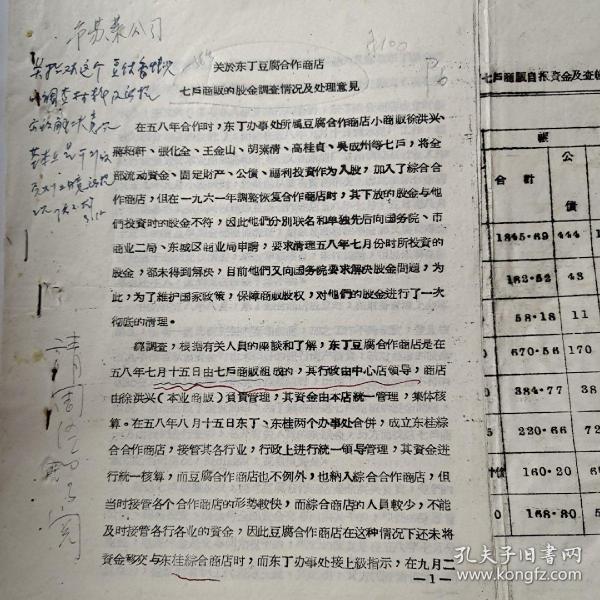 市蔬菜公司
关於东丁豆腐合作商店
七戶商販的股金調查情况及处理意見
在五八年合作时，东丁办事处所属豆腐合作商店小商販徐洪兴、
蔣紹軒、張化全、王金山、胡藻清、高桂貞、吳成州等七戶，将全
部流动資金、固定財产、公債、福利投資作为入股，加入了綜合合
作商店，但在一九六一年調整恢复合作商店时，其下放的股金与他
們投資时的股金不符，因此他們分別联名和单独先后向国务院、市
商业二局、东城区商业局申請，要求清理五八年七月份时所投資的
股金，都未得到解决，目前他們又向国务院要求解决股金問題，为
此，为了維护国家政策，保障商販股权，对他們的股金进行了一次
彻底的清理。
經調查，根据有关人員的座談和了解，东丁豆腐合作商店是在
五八年七月十五日由七戶商販組成的，其行政由中心店領导，商店
由徐洪兴（本业商販）負責管理，其資金由本店統一管理，集体核
算。在五八年八月十五日东丁、东桂两个办事处合併，成立东桂綜
合合作商店，接管其各行业，行政上进行統一領导管理，其資金进
行統一核算，而豆腐合作商店也不例外，也納入綜合合作商店，但
当时接管各个合作商店的形势較快，而綜合商店的人員較少，不能
及时接管各行各业的資金，因此豆腐合作商店在这种情况下还未将
資金移交与东桂綜合商店时，而东丁办事处接上級指示，在九月二
—1—
七戶商販自报資金及查
賬
合計
公債
1845·69 444
163·52 43
58·18 11
670·56 170
384·77 38
220·66 72
160·20
168·80
孔夫子旧书网
www.kongfz.com